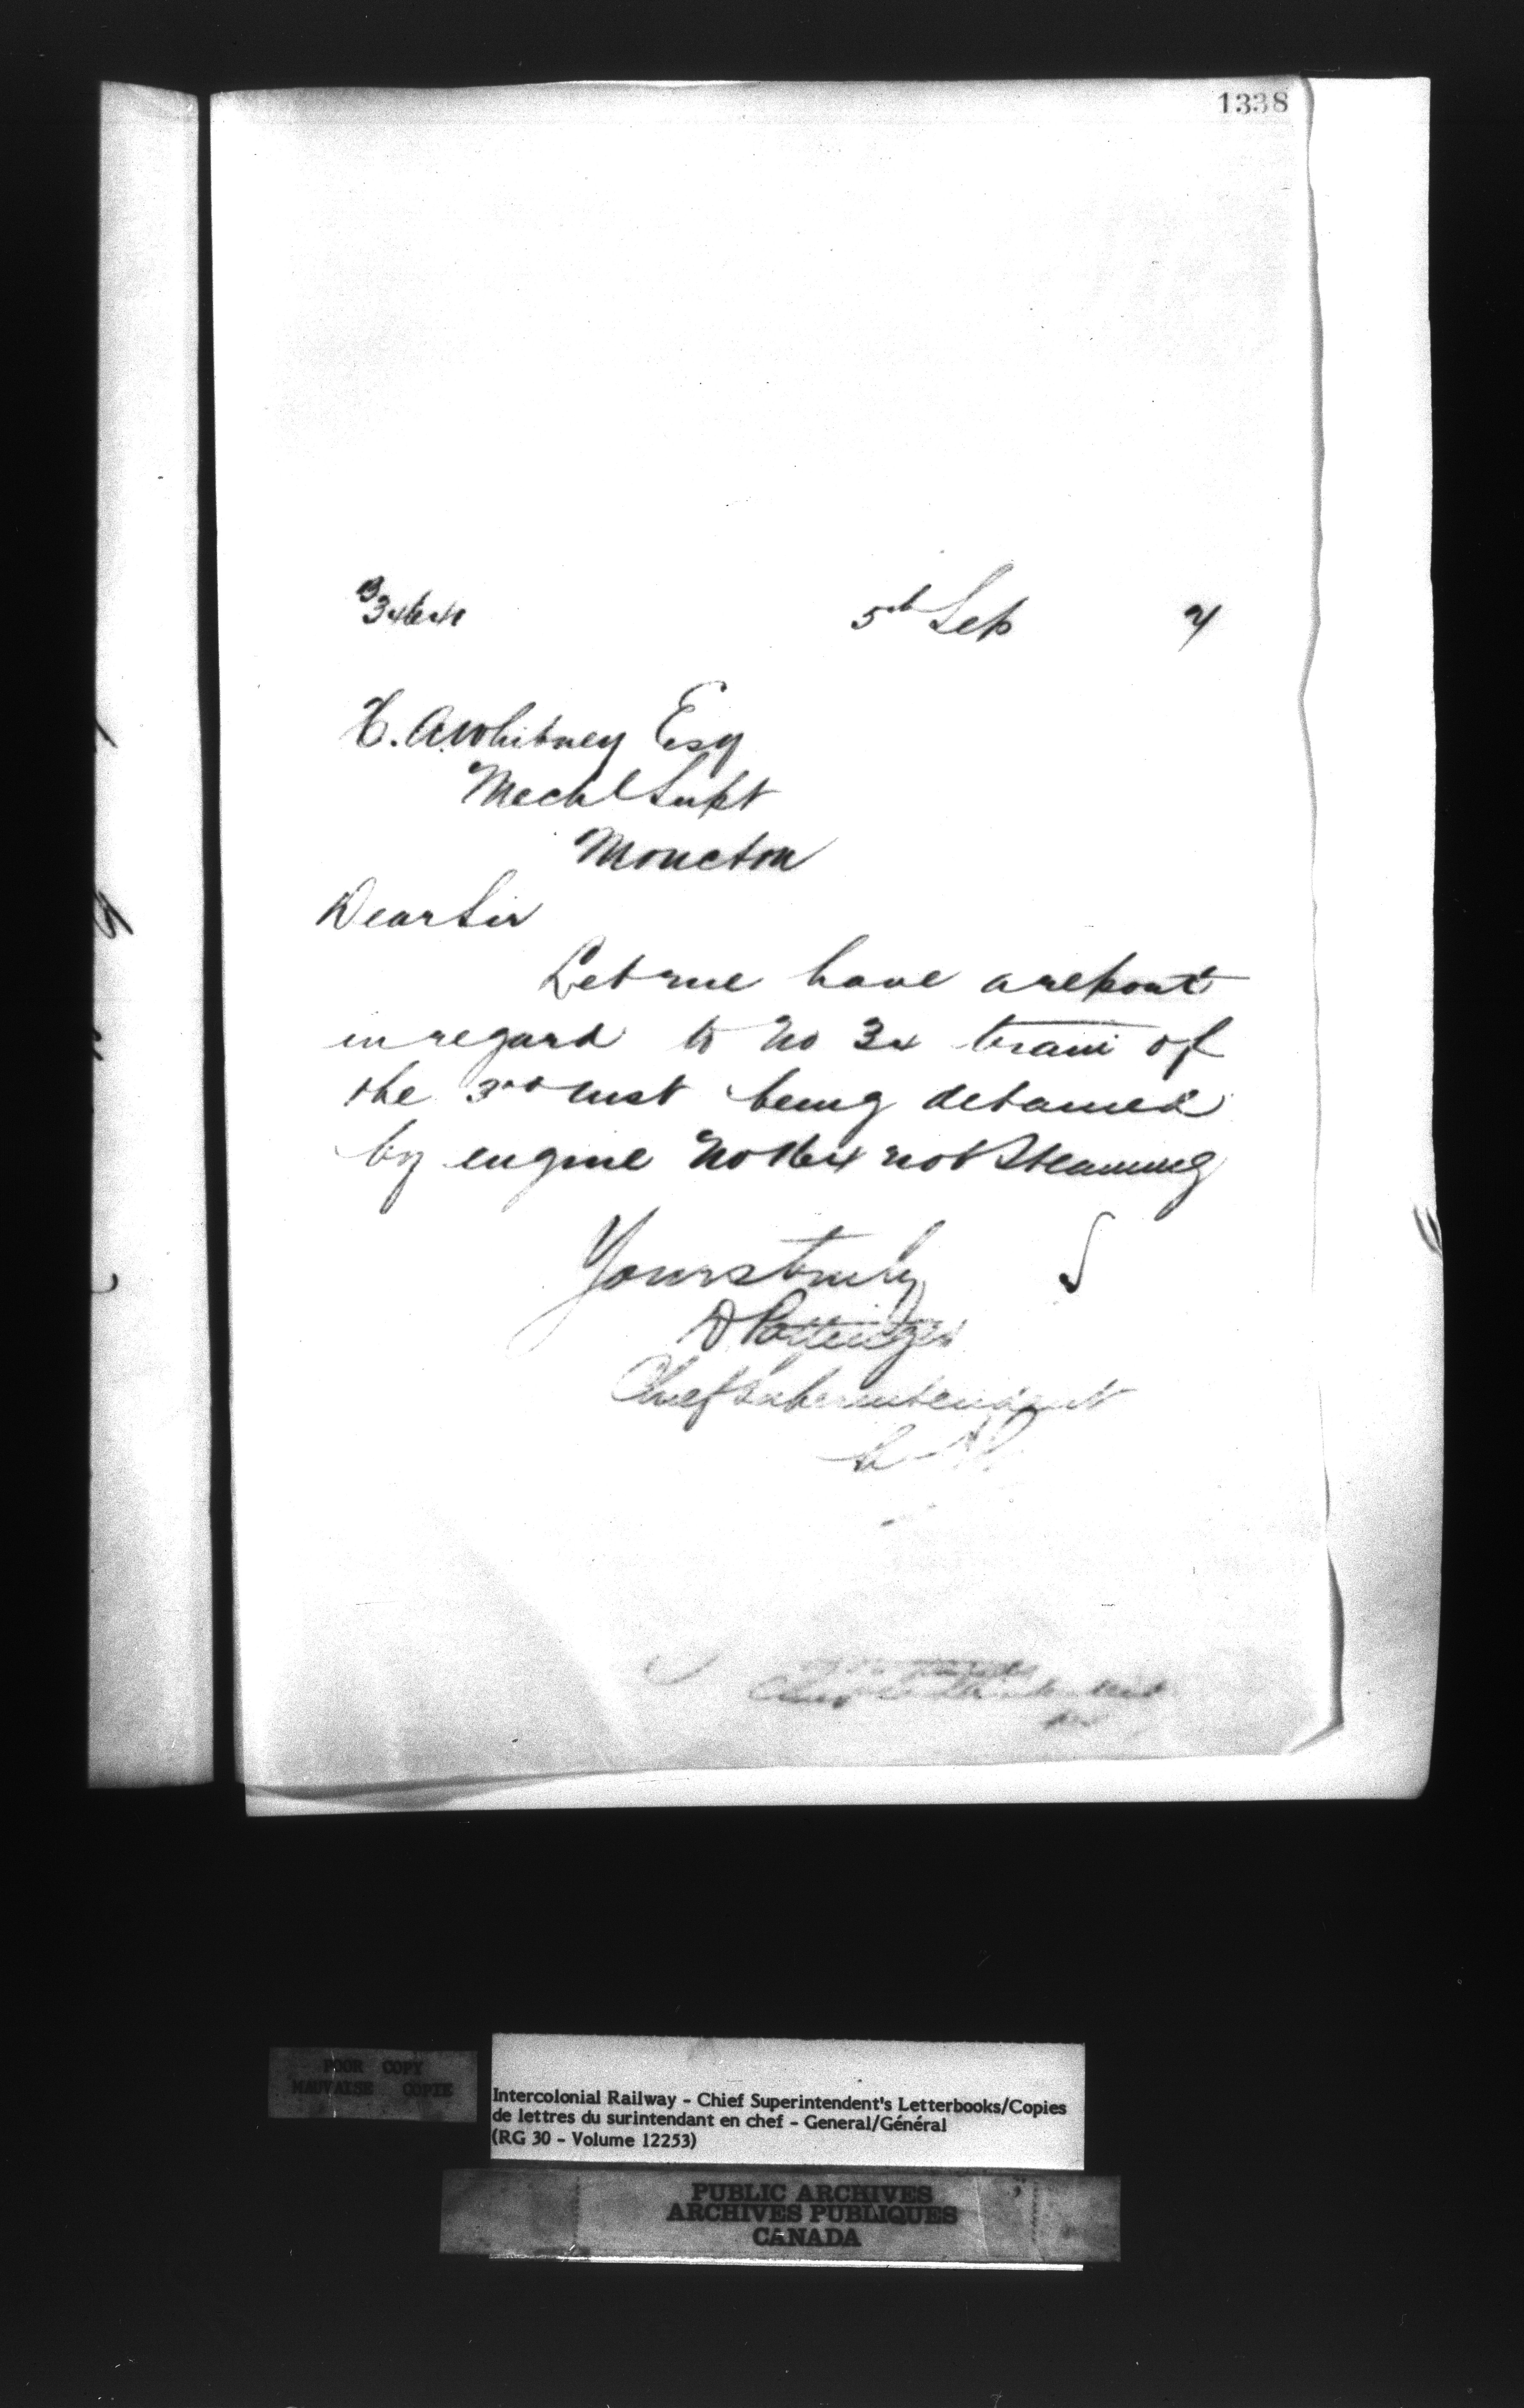 1338
5th Sep 7
H. A. Whitney Esq
Mechl Supt
Moncton
Dear Sir
Let me have a report
in regard to No 34 train of
the 3rd inst being detained
by engine No 164 not Steaming
Yours truly
D Pottinger
Chief Superintendent
POOR COPY
MAUVAISE COPIE
Intercolonial Railway - Chief Superintendent's Letterbooks/Copies
de lettres du surintendant en chef - General/Général
(RG 30 - Volume 12253)
PUBLIC ARCHIVES
ARCHIVES PUBLIQUES
CANADA